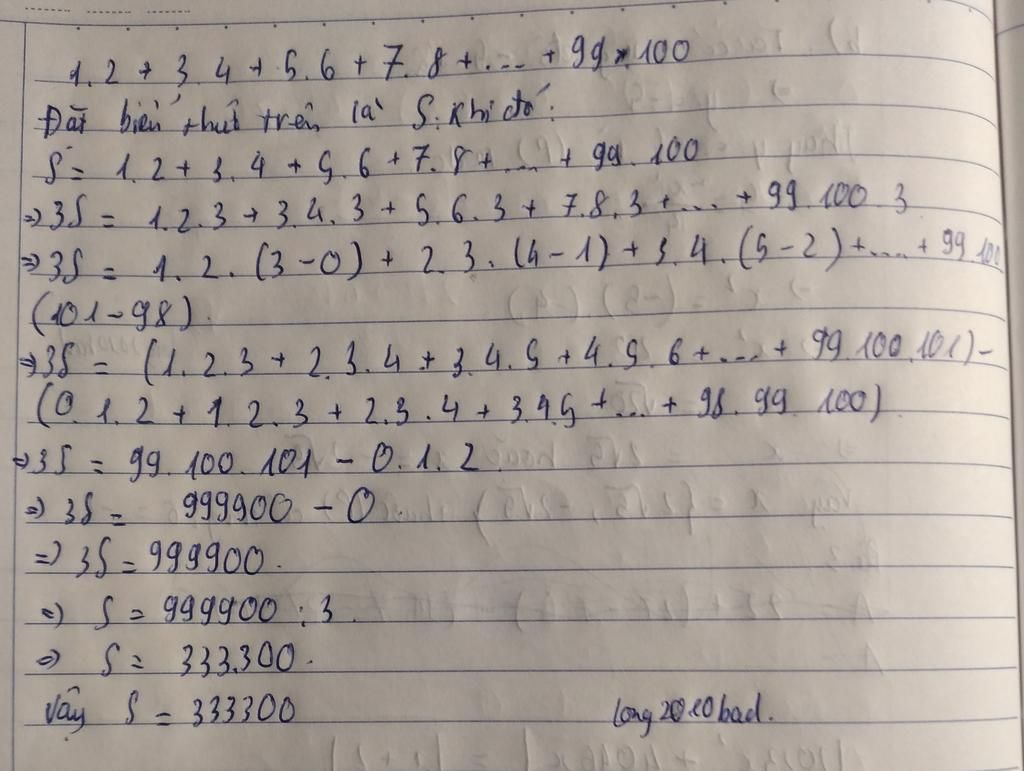 1.2 + 3.4 + 5.6 + 7.8 + ... + 99 × 100
Đặt biểu thức trên là S. Khi đó:
S = 1.2 + 3.4 + 5.6 + 7.8 + ... + 99.100
=> 3S = 1.2.3 + 3.4.3 + 5.6.3 + 7.8.3 + ... + 99.100.3
=> 3S = 1.2.(3-0) + 2.3.(4-1) + 3.4.(5-2) + ... + 99.100
(101-98).
=> 3S = (1.2.3 + 2.3.4 + 3.4.5 + 4.5.6 + ... + 99.100.101) -
(0.1.2 + 1.2.3 + 2.3.4 + 3.4.5 + ... + 98.99.100)
=> 3S = 99.100.101 - 0.1.2
=> 3S = 999900 - 0.
=> 3S = 999900.
=> S = 999900 : 3.
=> S = 333300.
Vậy S = 333300
long2010bad.